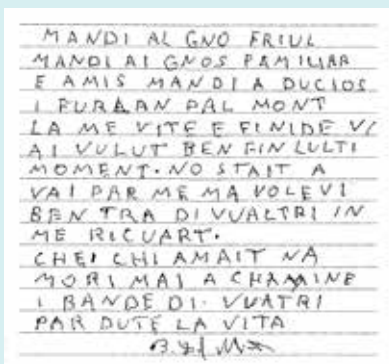 MANDI AL GNO FRIUL
MANDI AI GNOS FAMILIAR
E AMIS MANDI A DUCJOS
I FURLAN PAL MONT
LA ME VITE E FINIDE VI
AI VULUT BEN FIN LULTI
MOMENT. NO STAIT A
VAI PAR ME MA VOLEVI
BEN TRA DI VUALTRI IN
ME RICUART.
CHEI CHI AMAIT NA
MORI MAI A CHAMINE
I BANDE DI. VUATRI
PAR DUTE LA VITA